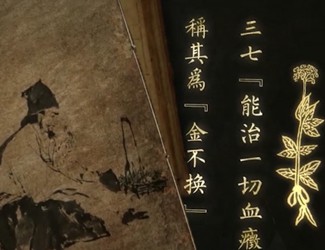 三七『能治一切血癥
稱其為『金不換』